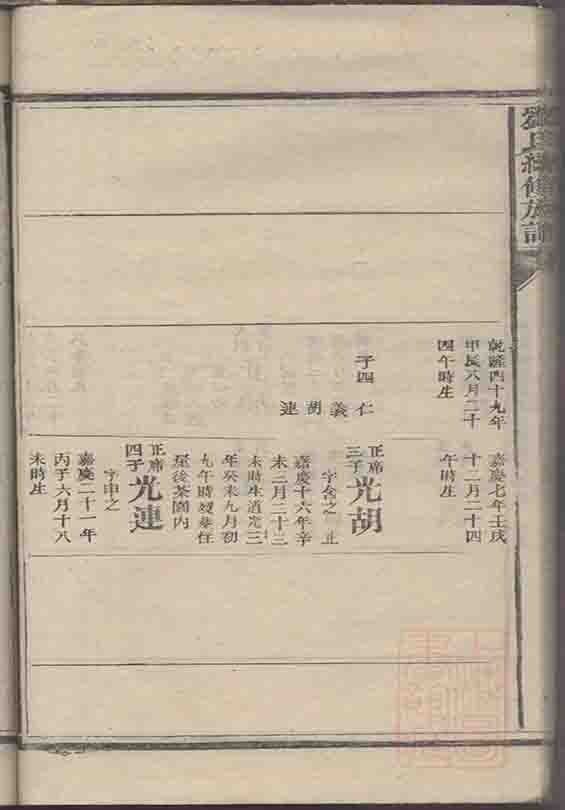 氏續修族譜
乾隆四十九年
甲辰八月二十
四午時生
子四 仁
義
胡
連
嘉慶七年壬戌
十二月二十四
午時生
正席三子 光胡
字含之 止
嘉慶十六年辛
未二月二十三
未時生道光三
年癸未九月初
九午時歿葬住
屋後茶園內
正席四子 光連
字申之
嘉慶二十一年
丙子六月十八
未時生